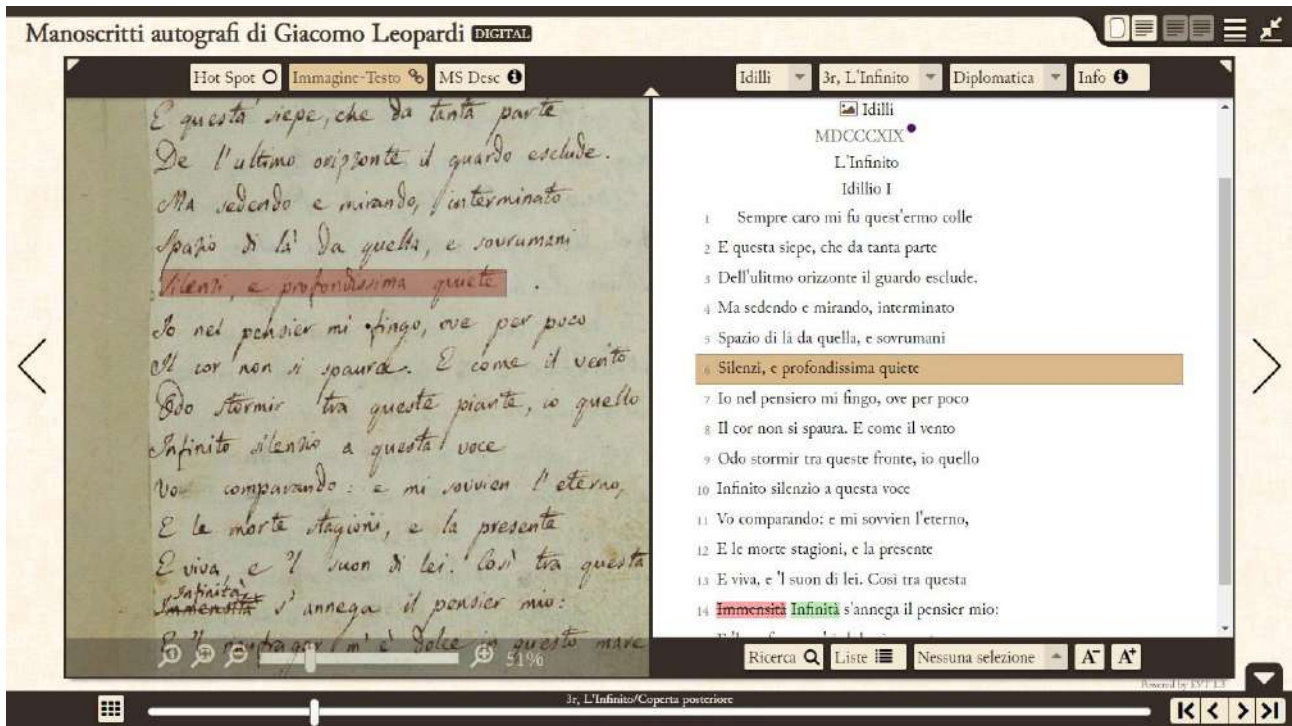 Manoscritti autografi di Giacomo Leopardi DIGITAL
Hot Spot
Immagine-Testo
MS Desc
Idilli
3r, L'Infinito
Diplomatica
Info
E questa siepe, che da tanta parte
De l'ultimo orizzonte il guardo esclude.
Ma sedendo e mirando, interminato
Spazio di là da quella, e sovrumani
Silenzi, e profondissima quiete.
Io nel pensier mi fingo, ove per poco
Il cor non si spaura. E come il vento
Odo stormir tra queste piante, io quello
Infinito silenzio a questa voce
Vo comparando: e mi sovvien l'eterno,
E le morte stagioni, e la presente
E viva, e 'l suon di lei. Così tra questa
Infinità
Immensità s'annega il pensier mio:
E 'l naufragar m'è dolce in questo mare
51%
Idilli
MDCCCXIX
L'Infinito
Idillio I
1 Sempre caro mi fu quest'ermo colle
2 E questa siepe, che da tanta parte
3 Dell'ulitmo orizzonte il guardo esclude.
4 Ma sedendo e mirando, interminato
5 Spazio di là da quella, e sovrumani
6 Silenzi, e profondissima quiete
7 Io nel pensiero mi fingo, ove per poco
8 Il cor non si spaura. E come il vento
9 Odo stormir tra queste fronte, io quello
10 Infinito silenzio a questa voce
11 Vo comparando: e mi sovvien l'eterno,
12 E le morte stagioni, e la presente
13 E viva, e 'l suon di lei. Così tra questa
14 Immensità Infinità s'annega il pensier mio:
Ricerca
Liste
Nessuna selezione
A-
A+
Powered by EVT 1.3
3r, L'Infinito/Coperta posteriore